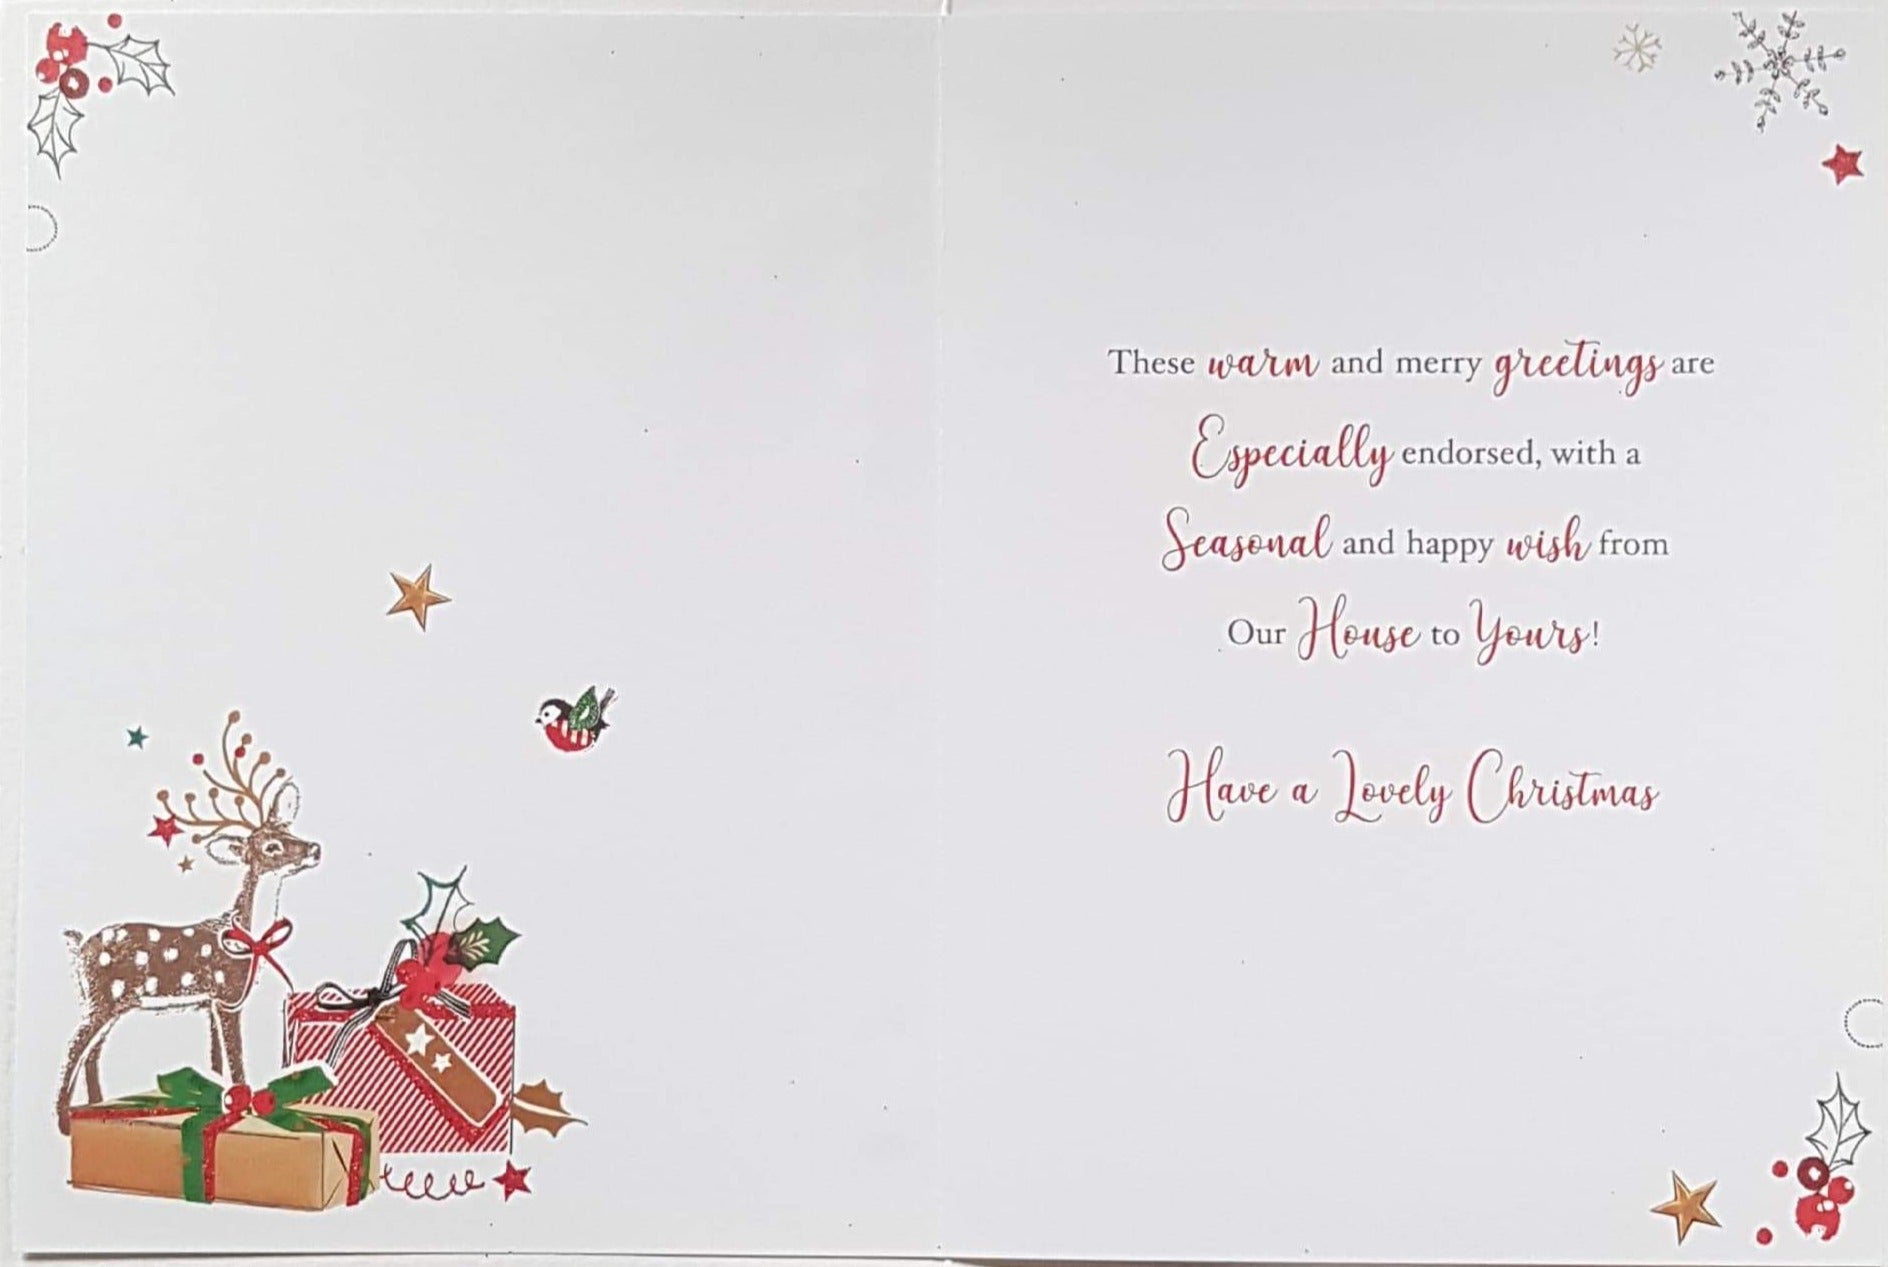 These warm and merry greetings are
Especially endorsed, with a
Seasonal and happy wish from
Our House to Yours!
Have a Lovely Christmas